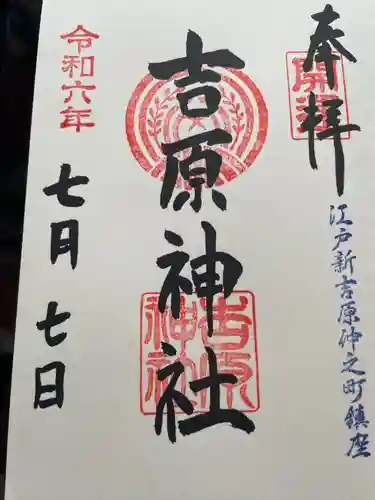 奉拝
開運
江戸新吉原仲之町鎮座
吉原神社
吉原神社
令和六年
七月七日